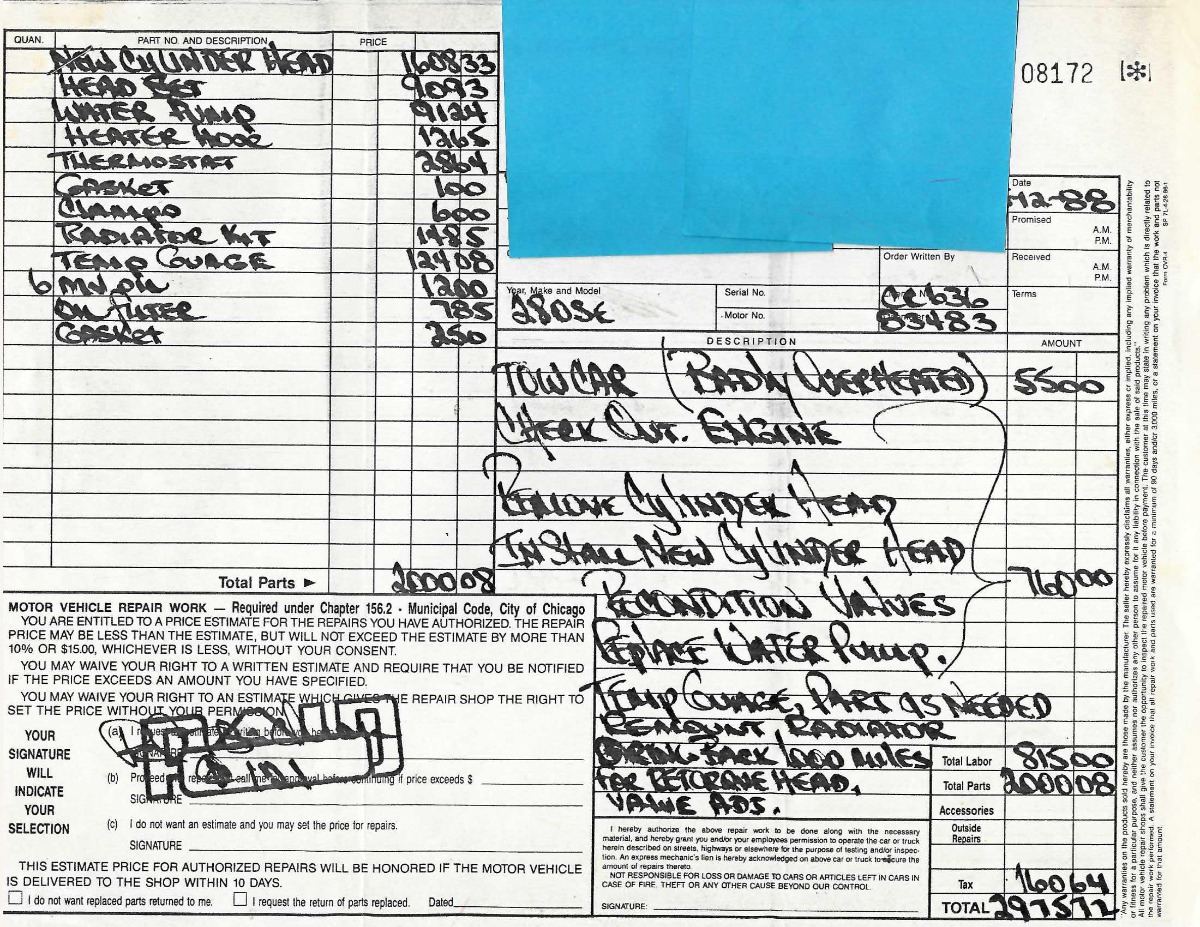 QUAN. PART NO. AND DESCRIPTION PRICE
NEW CYLINDER HEAD 1608 33
HEAD SET 90 93
WATER PUMP 91 24
HEATER HOSE 12 65
THERMOSTAT 28 64
GASKET 1 00
Clamps 6 00
RADIATOR KIT 14 85
TEMP GUAGE 124 08
6 12 00
OIL FILTER 7 85
GASKET 2 50
Total Parts ► 2000 08
08172 [*]
Date
-12-88
Promised
A.M.
P.M.
Order Written By
Received
A.M.
P.M.
Year, Make and Model
280SE
Serial No.
Motor No.
CC636
83483
Terms
DESCRIPTION AMOUNT
TOW CAR (BADLY OVERHEATED) 55 00
CHECK OUT. ENGINE
REMOVE CYLINDER HEAD
INSTALL NEW CYLINDER HEAD
760 00
RECONDITION VALVES
REPLACE WATER PUMP.
TEMP GUAGE, PART AS NEEDED
REMOUNT, RADIATOR
BRING BACK 1,000 MILES
FOR RETORQUE HEAD,
VALVE ADJ.
Total Labor 815 00
Total Parts 2000 08
Accessories
Outside
Repairs
Tax 160 64
TOTAL 2975 72
MOTOR VEHICLE REPAIR WORK — Required under Chapter 156.2 - Municipal Code, City of Chicago
YOU ARE ENTITLED TO A PRICE ESTIMATE FOR THE REPAIRS YOU HAVE AUTHORIZED. THE REPAIR
PRICE MAY BE LESS THAN THE ESTIMATE, BUT WILL NOT EXCEED THE ESTIMATE BY MORE THAN
10% OR $15.00, WHICHEVER IS LESS, WITHOUT YOUR CONSENT.
YOU MAY WAIVE YOUR RIGHT TO A WRITTEN ESTIMATE AND REQUIRE THAT YOU BE NOTIFIED
IF THE PRICE EXCEEDS AN AMOUNT YOU HAVE SPECIFIED.
YOU MAY WAIVE YOUR RIGHT TO AN ESTIMATE WHICH GIVES THE REPAIR SHOP THE RIGHT TO
SET THE PRICE WITHOUT YOUR PERMISSION.
YOUR
SIGNATURE
WILL
INDICATE
YOUR
SELECTION
(a) I request
SIGNATURE
(b) Proceed continuing if price exceeds $
SIGNATURE
(c) I do not want an estimate and you may set the price for repairs.
SIGNATURE
THIS ESTIMATE PRICE FOR AUTHORIZED REPAIRS WILL BE HONORED IF THE MOTOR VEHICLE
IS DELIVERED TO THE SHOP WITHIN 10 DAYS.
I do not want replaced parts returned to me. I request the return of parts replaced. Dated
I hereby authorize the above repair work to be done along with the necessary
material, and hereby grant you and/or your employees permission to operate the car or truck
herein described on streets, highways or elsewhere for the purpose of testing and/or inspec-
tion. An express mechanic's lien is hereby acknowledged on above car or truck to secure the
amount of repairs thereto.
NOT RESPONSIBLE FOR LOSS OR DAMAGE TO CARS OR ARTICLES LEFT IN CARS IN
CASE OF FIRE, THEFT OR ANY OTHER CAUSE BEYOND OUR CONTROL.
SIGNATURE:
"Any warranties on the products sold hereby are those made by the manufacturer. The seller hereby expressly disclaims all warranties, either express or implied, including any implied warranty of merchantability
or fitness for a particular purpose, and neither assumes nor authorizes any other person to assume for it any liability in connection with the sale of said products."
All motor vehicle repair shops shall give the customer the opportunity to inspect the repaired motor vehicle before payment. The customer at this time may state in writing any problem which is directly related to
the repair work performed. A statement on your invoice that all repair work and parts used are warranted for a minimum of 90 days and/or 3,000 miles, or a statement on your invoice that the work and parts not
warranted for that amount.